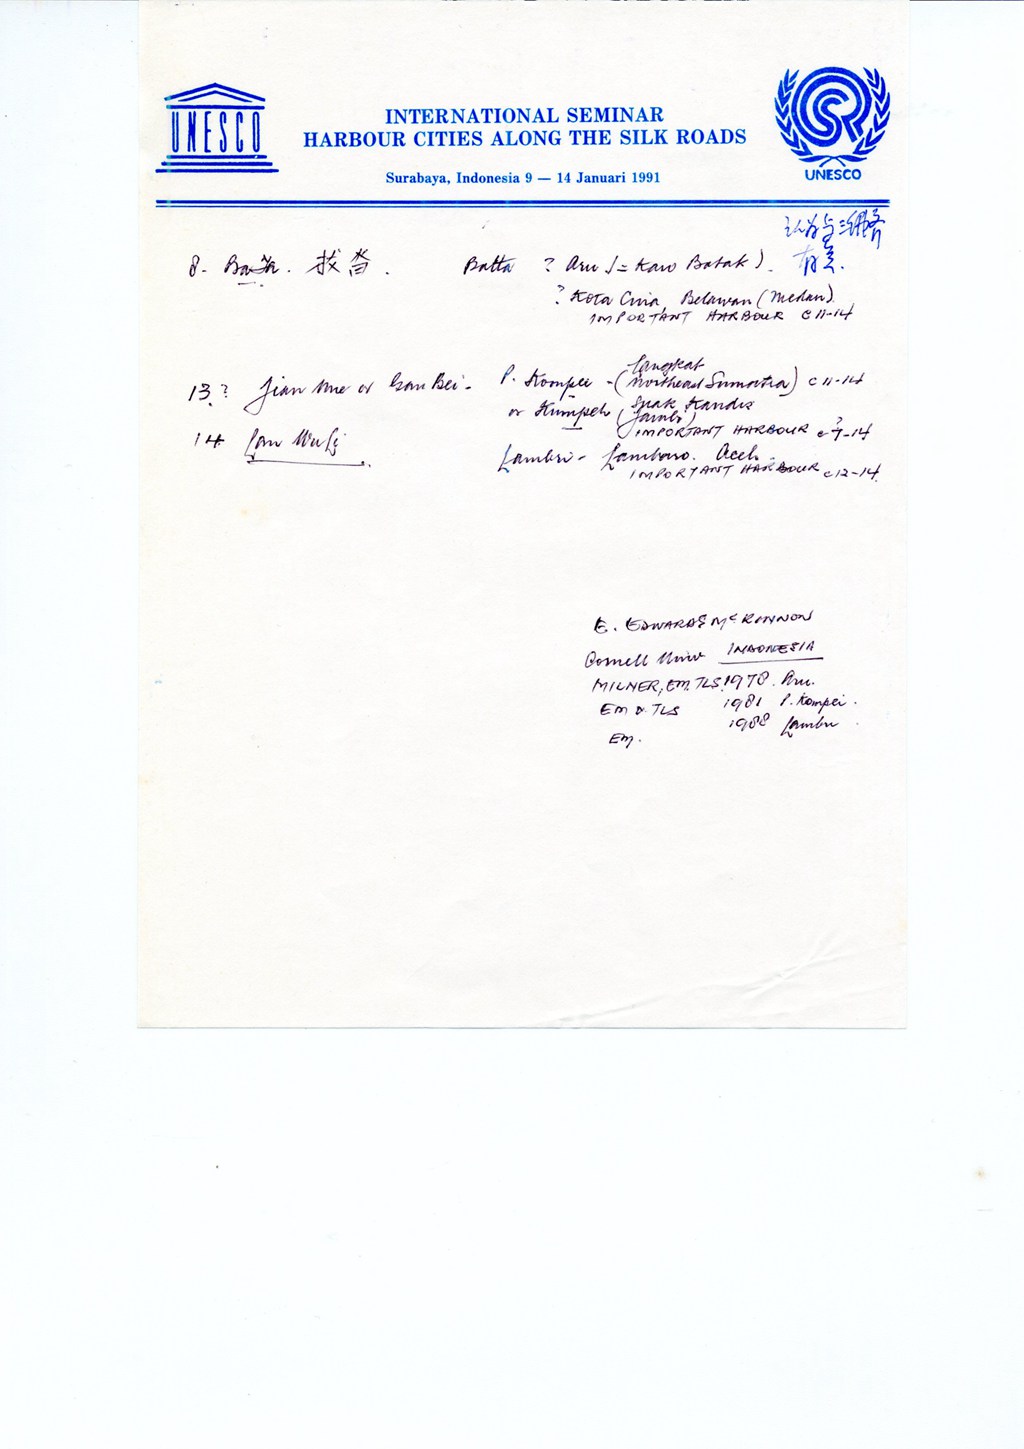 UNESCO
INTERNATIONAL SEMINAR
HARBOUR CITIES ALONG THE SILK ROADS
UNESCO
Surabaya, Indonesia 9 — 14 Januari 1991
8. 拔沓. Batta ? Aru (= Karo Batak).
? Kota Cina, Belawan (Medan)
IMPORTANT HARBOUR C 11-14
13? Jian or Gan Bei - P. Kompei - (Langkat
Northeast Sumatra) C 11-14
or Kumpeh (Suak Kandis
Jambi)
IMPORTANT HARBOUR C ?7-14
14 Lan Wu Li Lambri - Lambaro. Aceh.
IMPORTANT HARBOUR C 12-14.
E. EDWARDS McKINNON
Cornell Univ INDONESIA
MILNER, EM. TLS. 1978. Aru.
EM & TLS 1981 P. Kompei.
EM. 1988 Lambri.